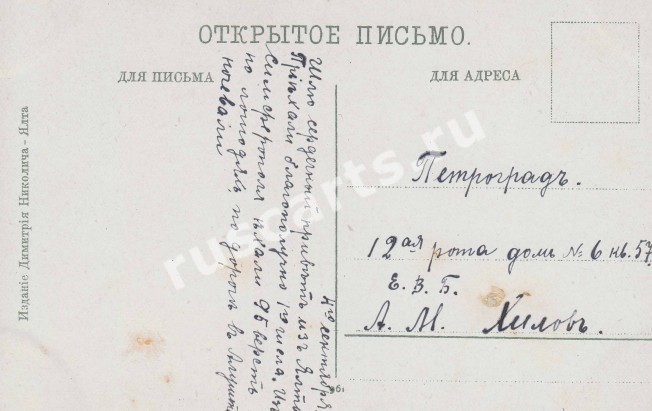 ОТКРЫТОЕ ПИСЬМО.
ДЛЯ ПИСЬМА
ДЛЯ АДРЕСА
Изданіе Димитрія Николича - Ялта
4го сентября
Шлю сердечный привѣтъ изъ Ялты
Пріѣхали благополучно 1го числа. Изъ
Симферополя ѣхали 95 верстъ
по лошадях по дорогѣ въ Алушт
ночевали
Петроградъ.
12ая рота домъ № 6 кв. 57
Е. В. Б.
А. М. Хиловъ.
ruscarts.ru